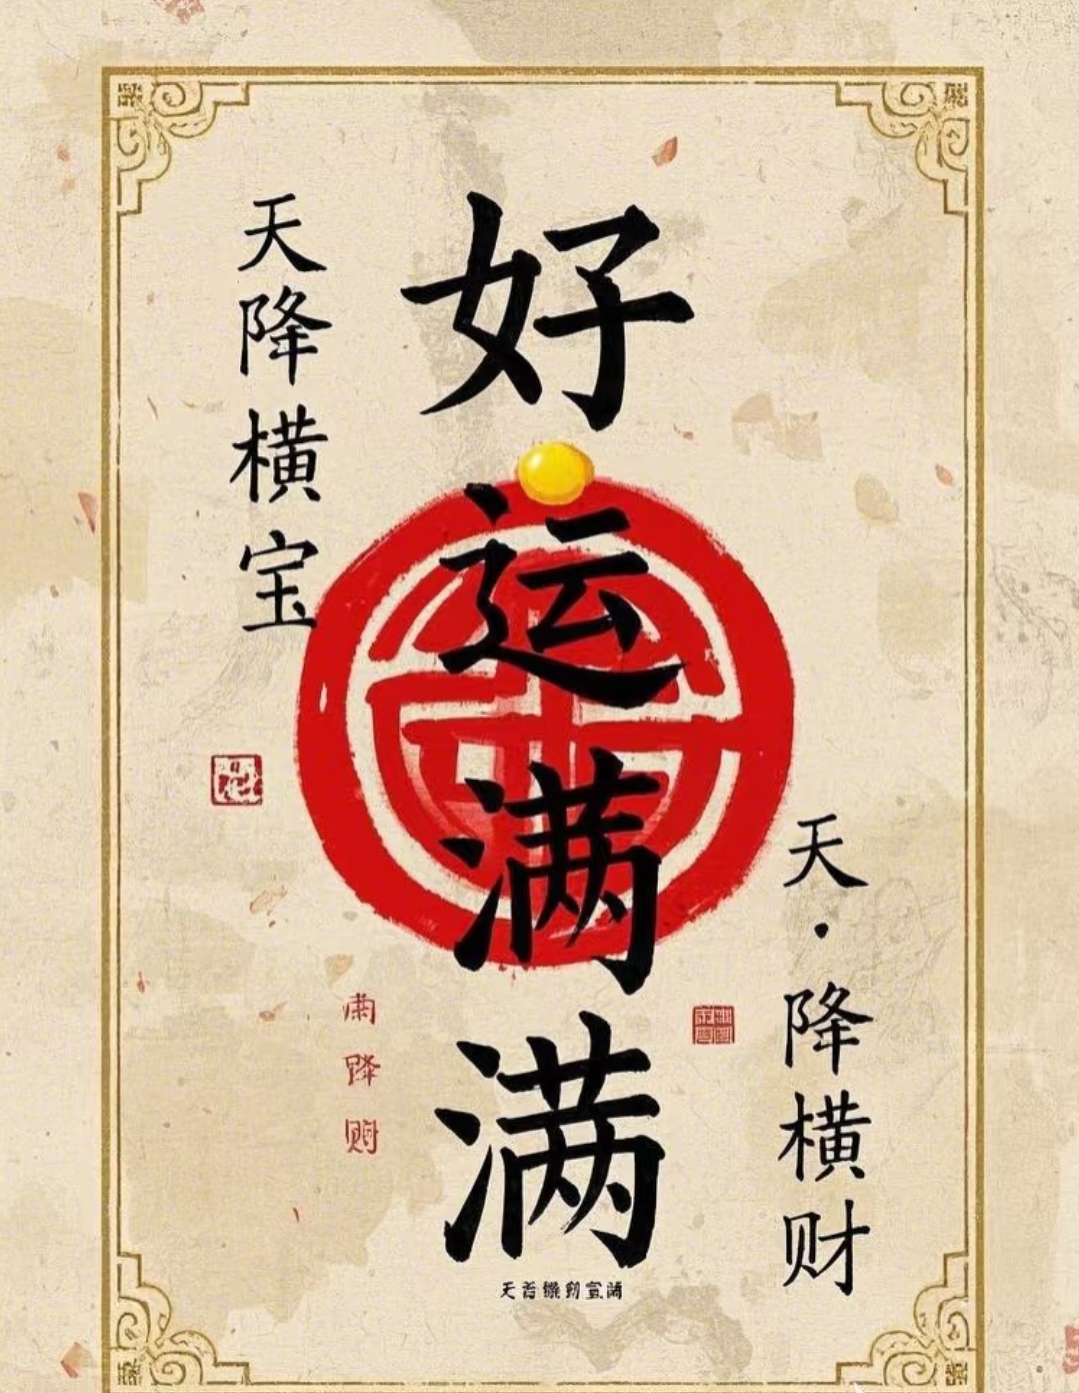 天降横宝
好运满满
天·降横财